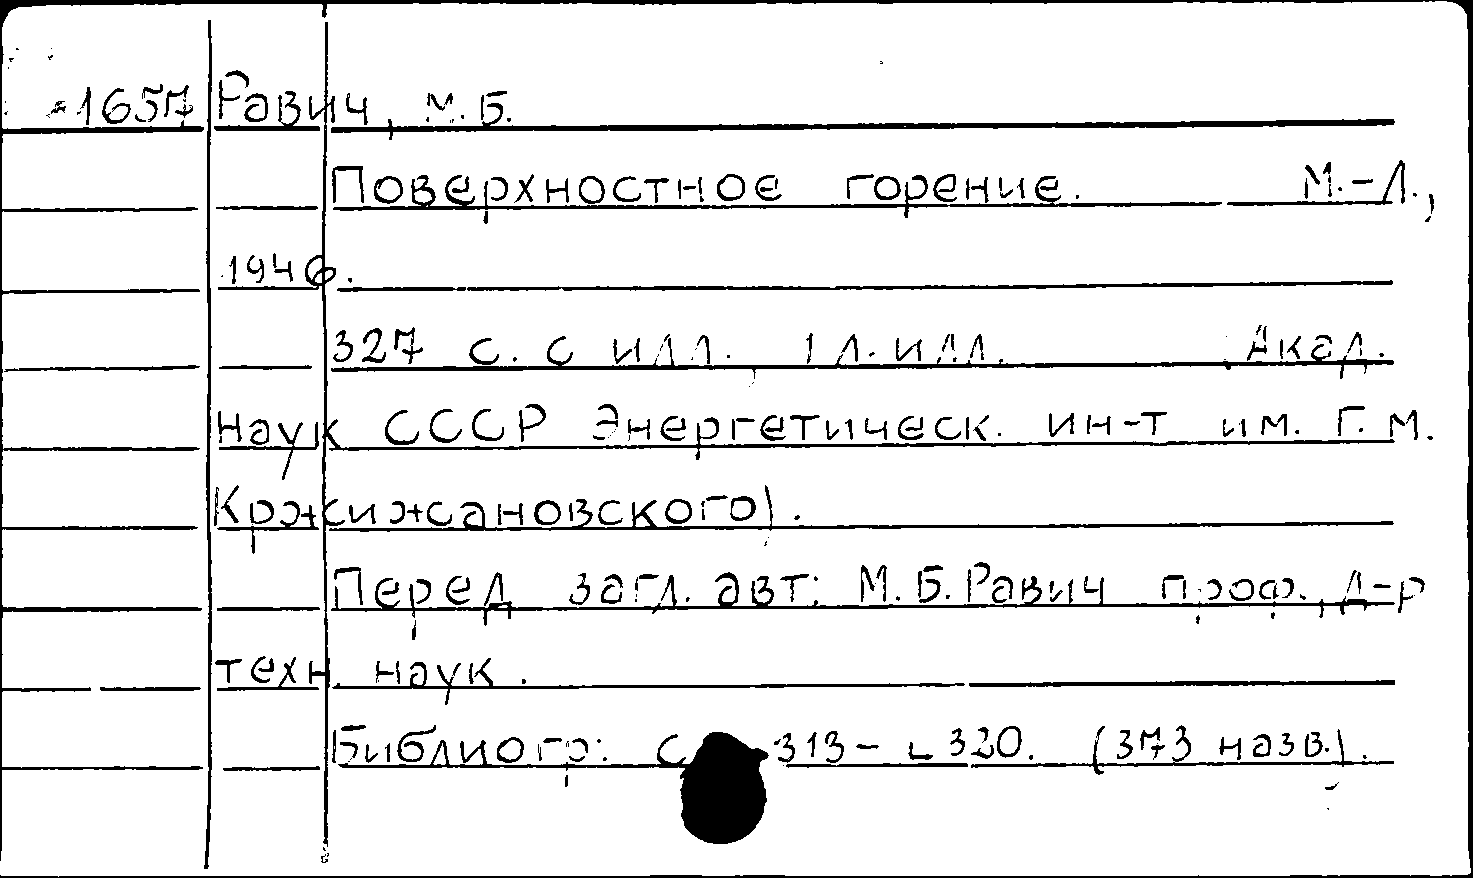 1657 Равич, М.Б.
Поверхностное горение. М.-Л.,
1946.
327 с. с илл., 1 л. илл. (Акад.
наук СССР Энергетическ. ин-т им. Г.М.
Кржижановского).
Перед загл. авт: М.Б. Равич проф., д-р
техн. наук.
Библиогр: с. 313- 320. (373 назв.).